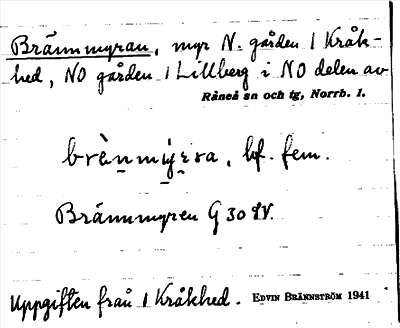 Brännmyran, myr N. gården 1 Kråk-
hed, NO gården 1 Lillberg i NO delen av
Råneå sn och tg, Norrb. l.
brèn̠mýr̠ra, bf. fem.
Brännmyren G 30 SV.
Uppgiften från 1 Kråkhed. EDVIN BRÄNNSTRÖM 1941